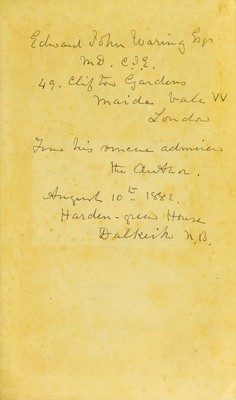 Edward John Waring Esqr
M.D. C.I.E.
49. Clifton Gardens
Maida Vale W
London
From his sincere admirer
the Author.
August 10th 1882.
Harden-green House
Dalkeith N.B.